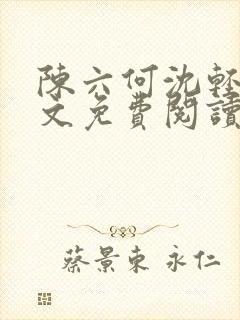 陳六何沈輕
文免費閱讀
蔡景東 永仁